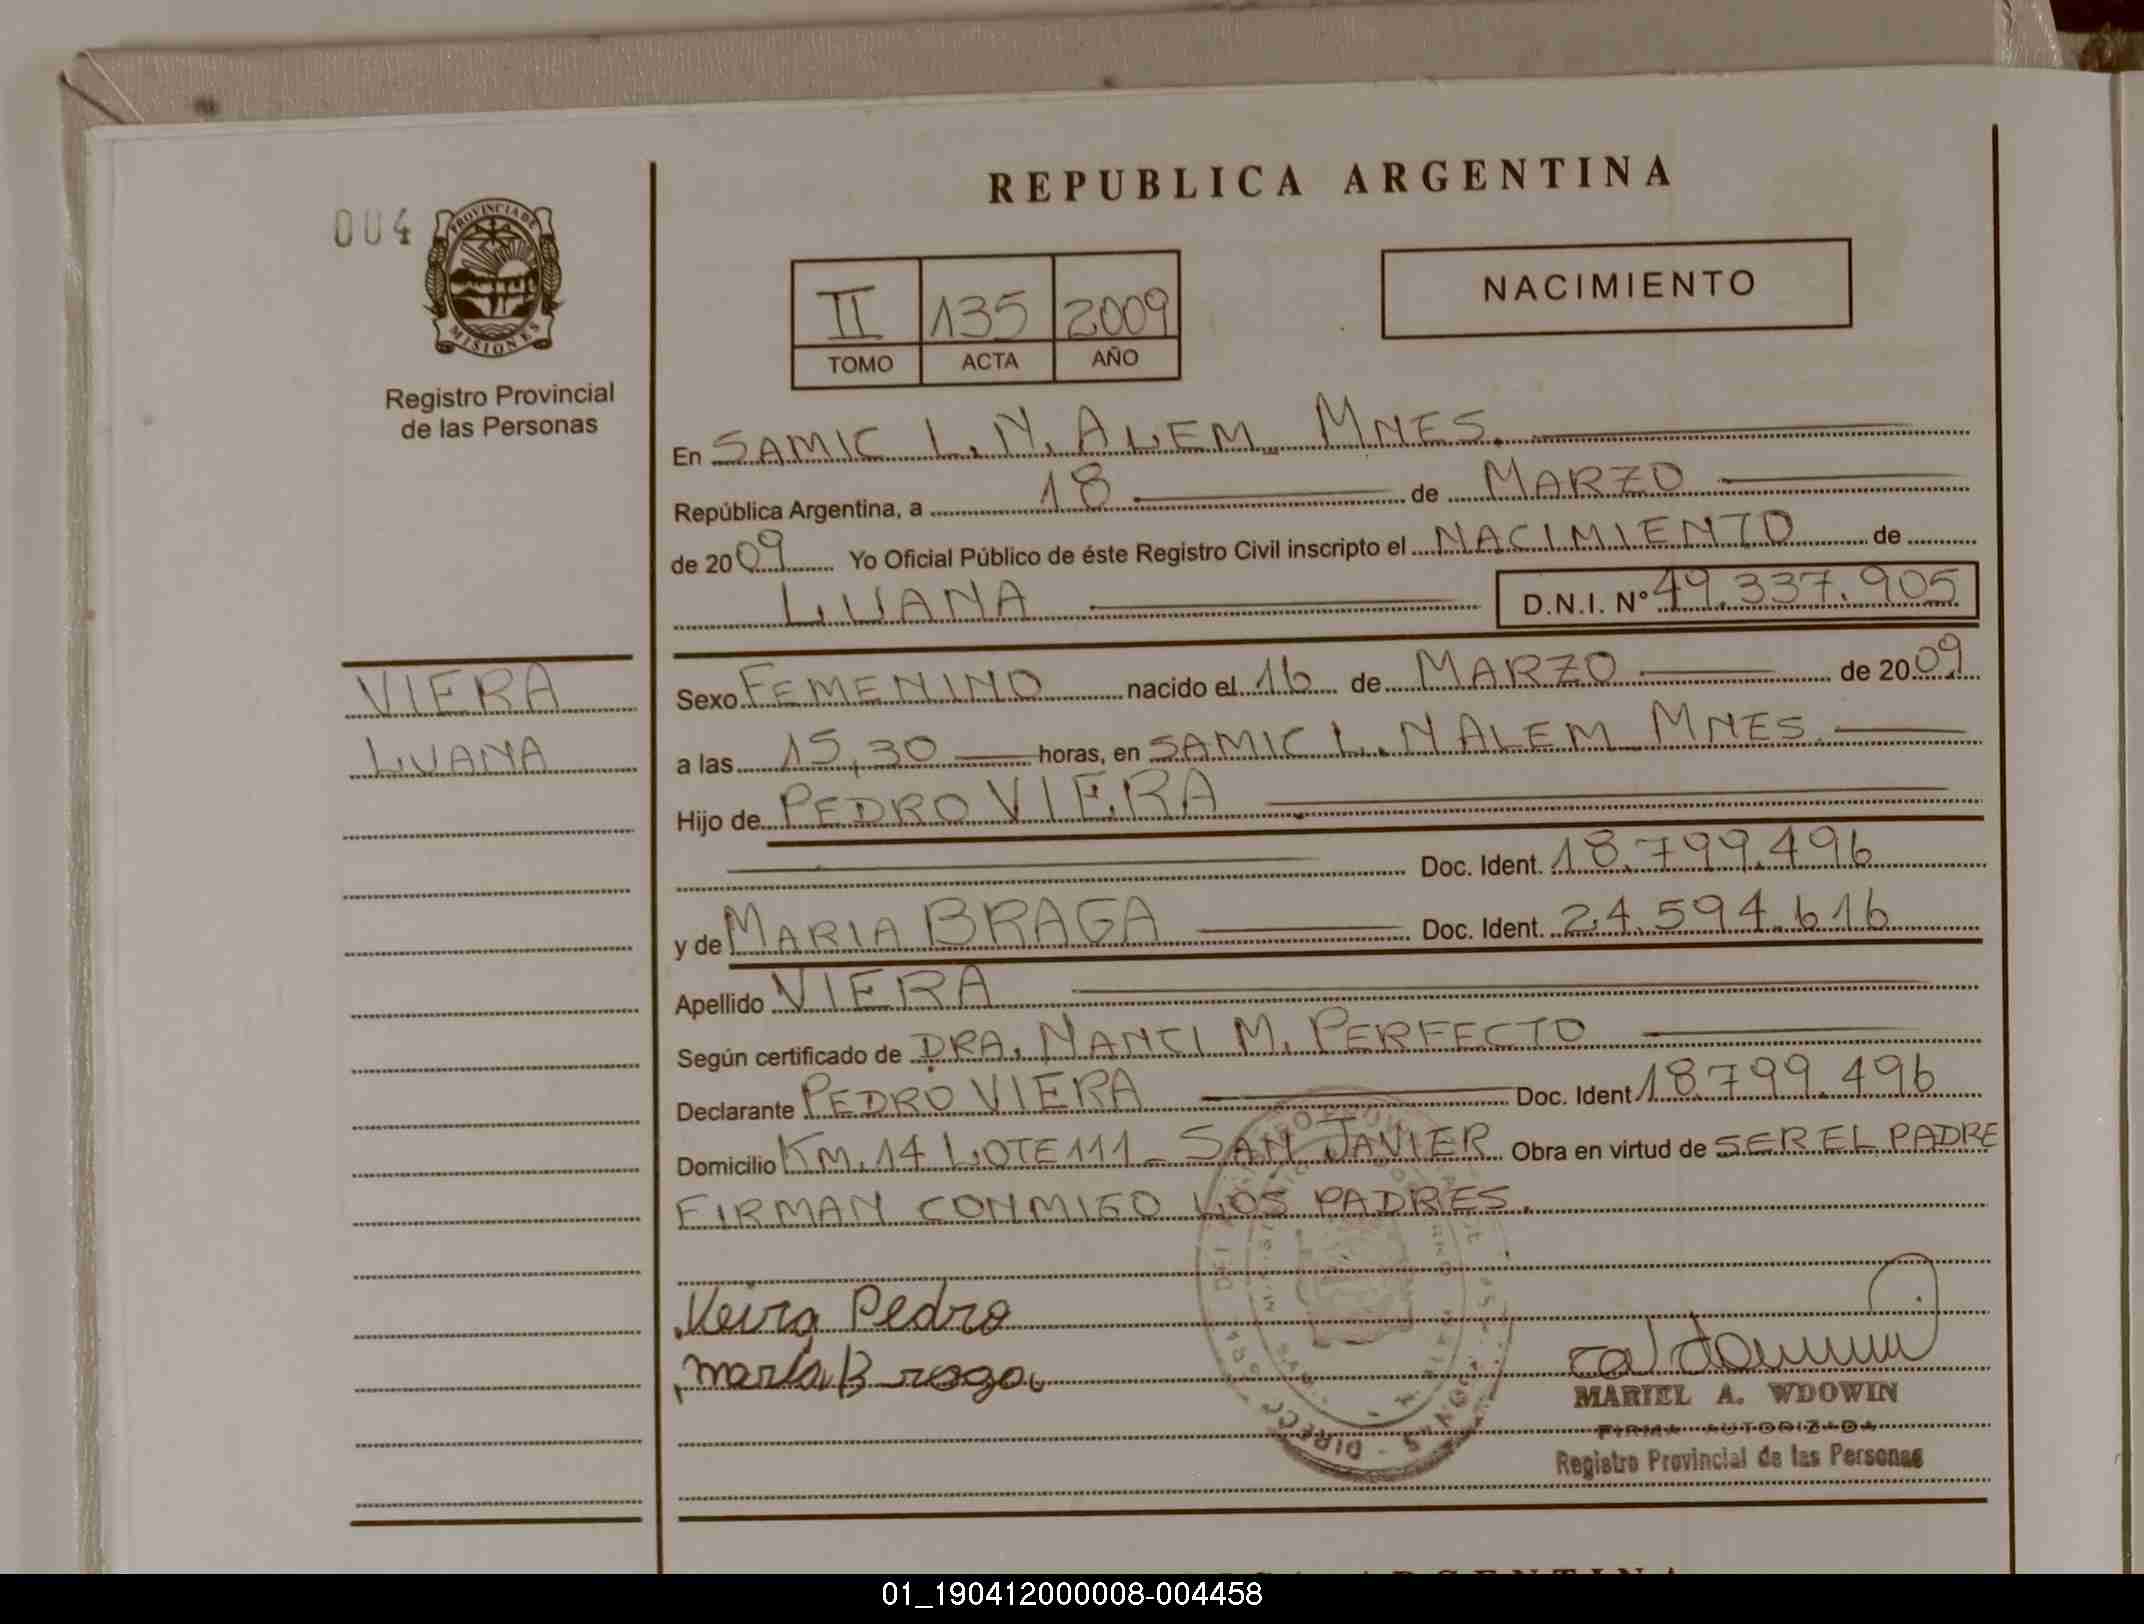 004
PROVINCIA DE
MISIONES
Registro Provincial
de las Personas
VIERA
LUANA
REPUBLICA ARGENTINA
II 135 2009
TOMO ACTA AÑO
NACIMIENTO
En SAMIC L. N. ALEM MNES.
República Argentina, a 18 de MARZO
de 2009 Yo Oficial Público de éste Registro Civil inscripto el NACIMIENTO de
LUANA D.N.I. Nº 49.337.905
Sexo FEMENINO nacido el 16 de MARZO de 2009
a las 15,30 horas, en SAMIC L. N ALEM MNES.
Hijo de PEDRO VIERA
Doc. Ident. 18.799.496
y de MARIA BRAGA Doc. Ident. 24.594.616
Apellido VIERA
Según certificado de DRA. NANCI M. PERFECTO
Declarante PEDRO VIERA Doc. Ident 18.799.496
Domicilio KM. 14 LOTE 111 - SAN JAVIER Obra en virtud de SER EL PADRE
FIRMAN CONMIGO LOS PADRES.
Veira Pedro
maria Braga
MARIEL A. WDOWIN
FIRMA AUTORIZADA
Registro Provincial de las Personas
01_190412000008-004458